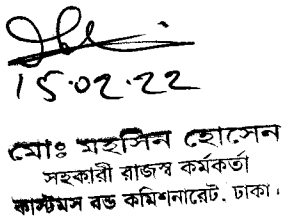 15.02.22
মোঃ মহসিন হোসেন
সহকারী রাজস্ব কর্মকর্তা
কাস্টমস বন্ড কমিশনারেট, ঢাকা।